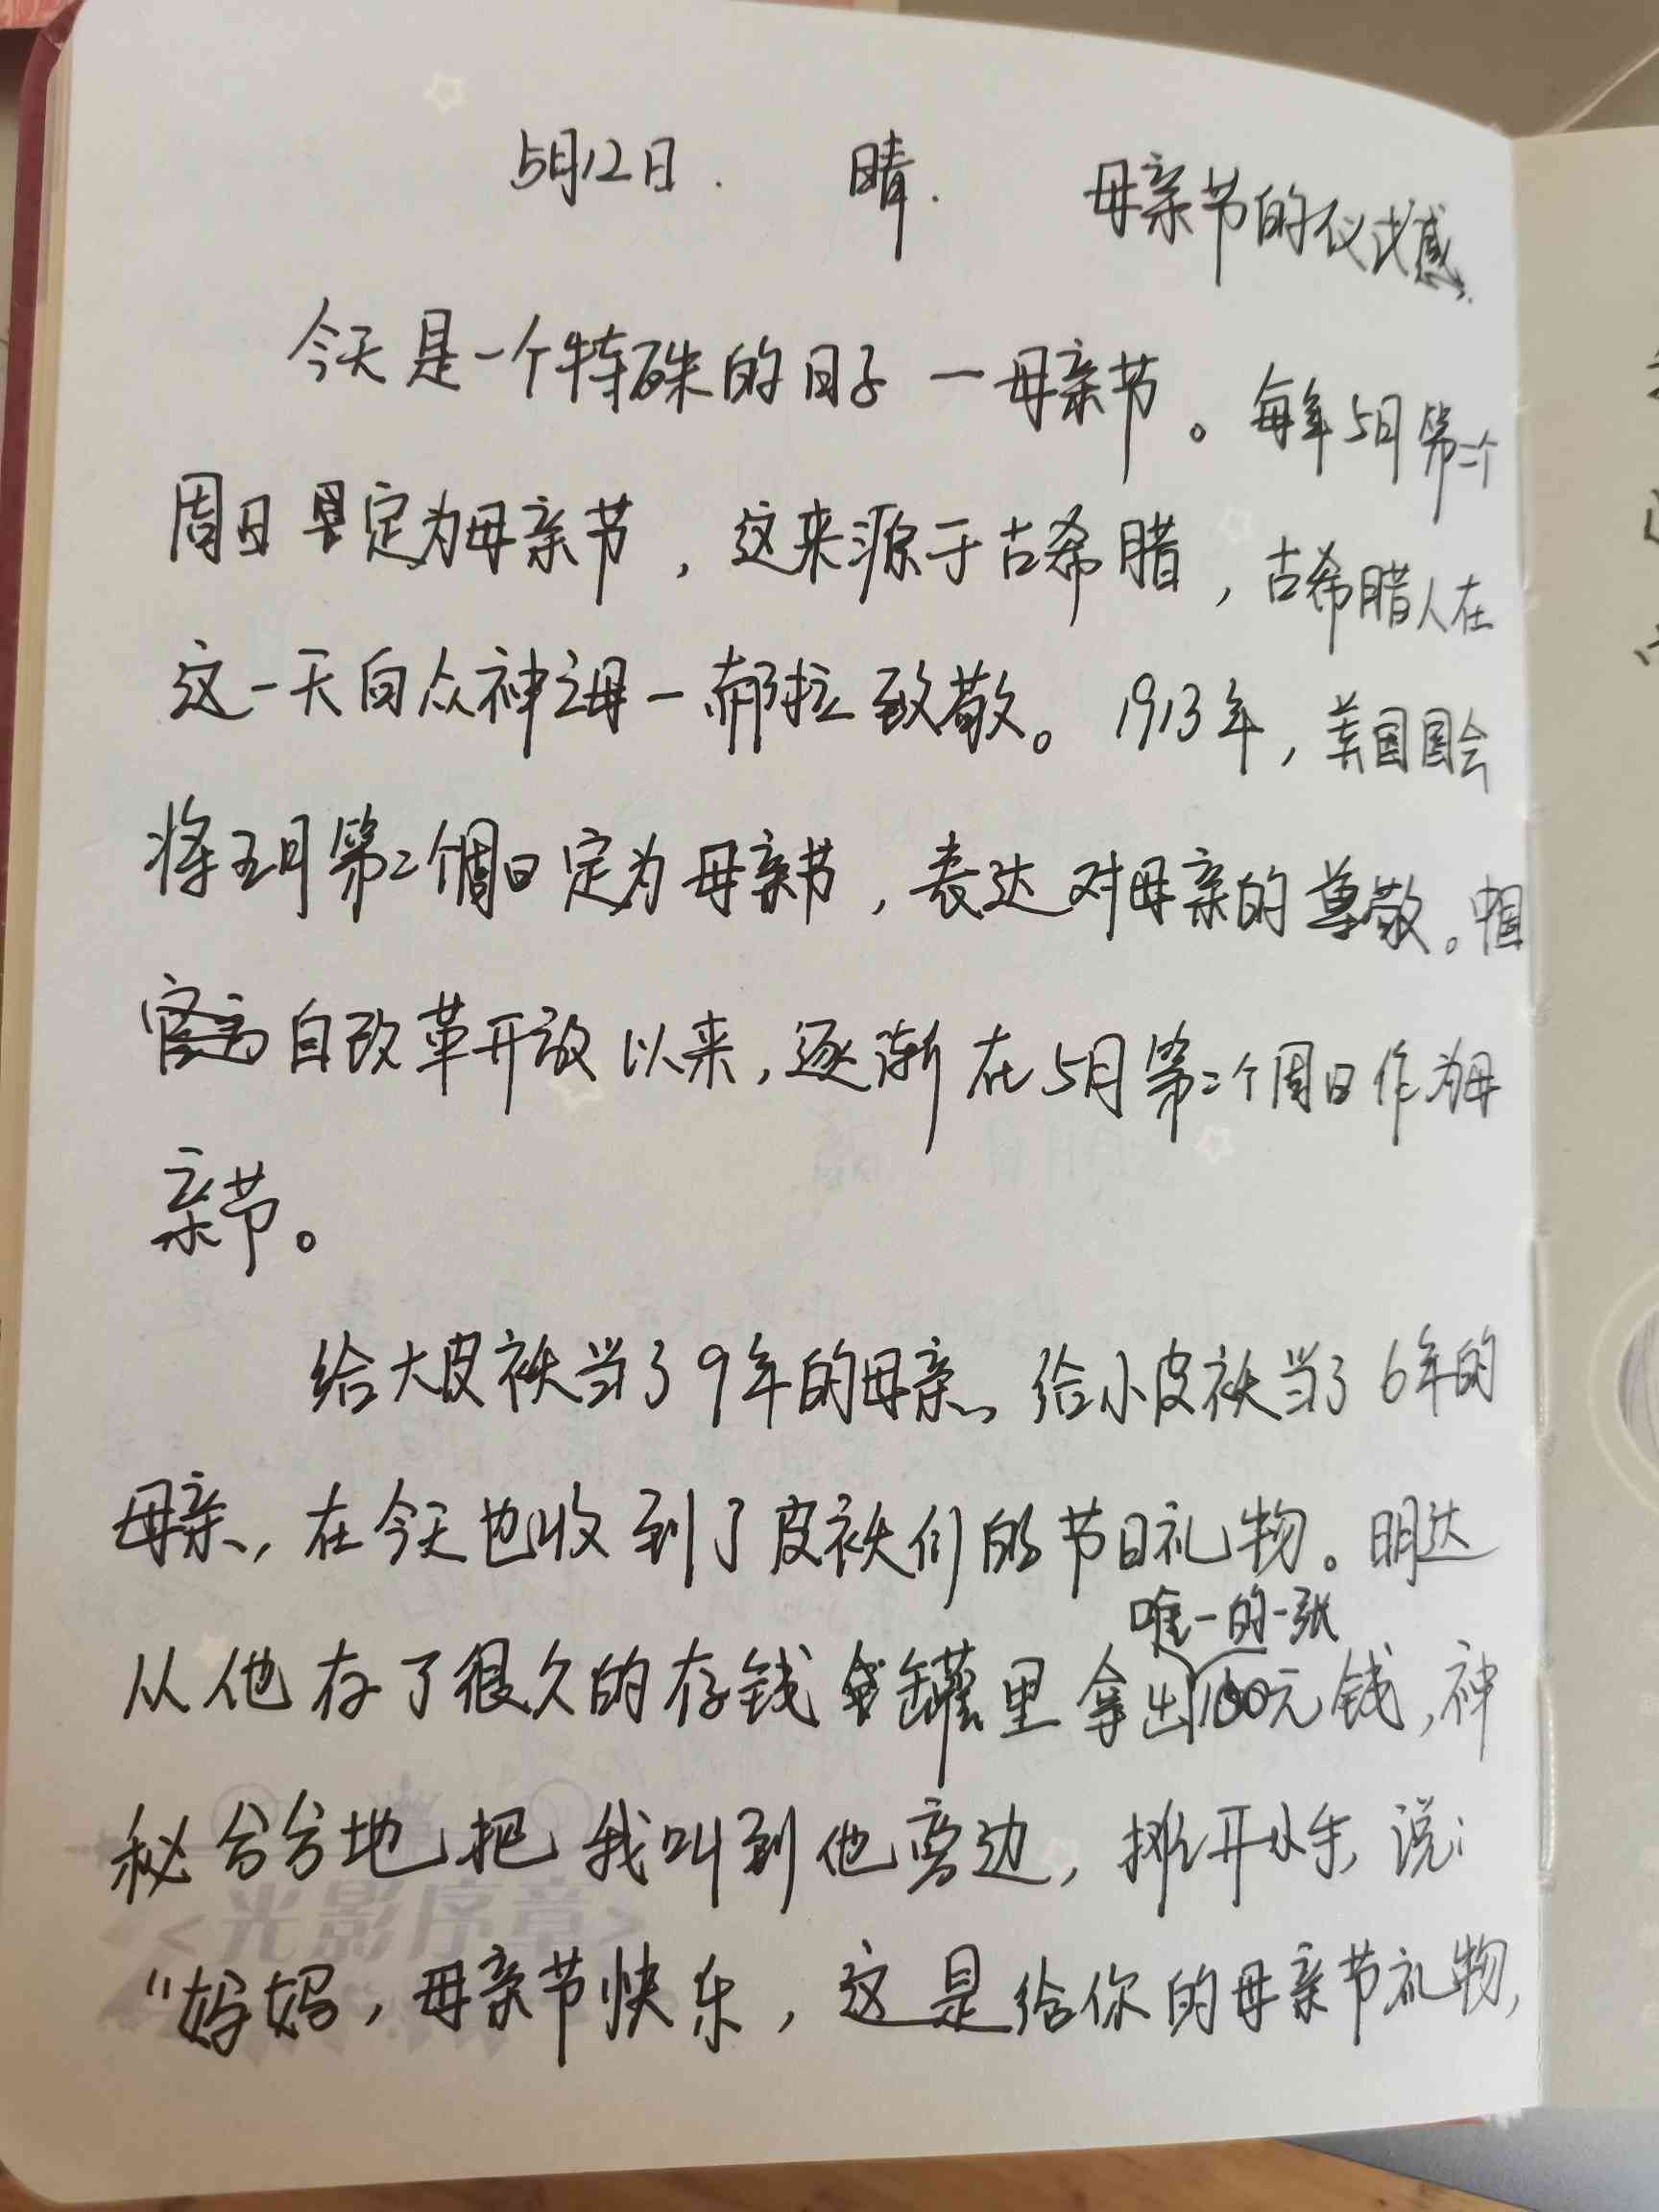 5月12日. 晴. 母亲节的仪式感.
今天是一个特殊的日子一母亲节。每年5月第二个
周日是定为母亲节，这来源于古希腊，古希腊人在
这一天向众神之母一赫拉致敬。1913年，美国国会
将五月第二个周日定为母亲节，表达对母亲的尊敬。中国
自改革开放以来，逐渐在5月第二个周日作为母
亲节。
给大皮袄当了9年的母亲、给小皮袄当了6年的
母亲，在今天也收到了皮袄们的节日礼物。明达
唯一的一张
从他存了很久的存钱罐里拿出100元钱，神
秘兮兮地把我叫到他旁边，摊开小手，说：
“妈妈，母亲节快乐，这是给你的母亲节礼物，
<光影序章>